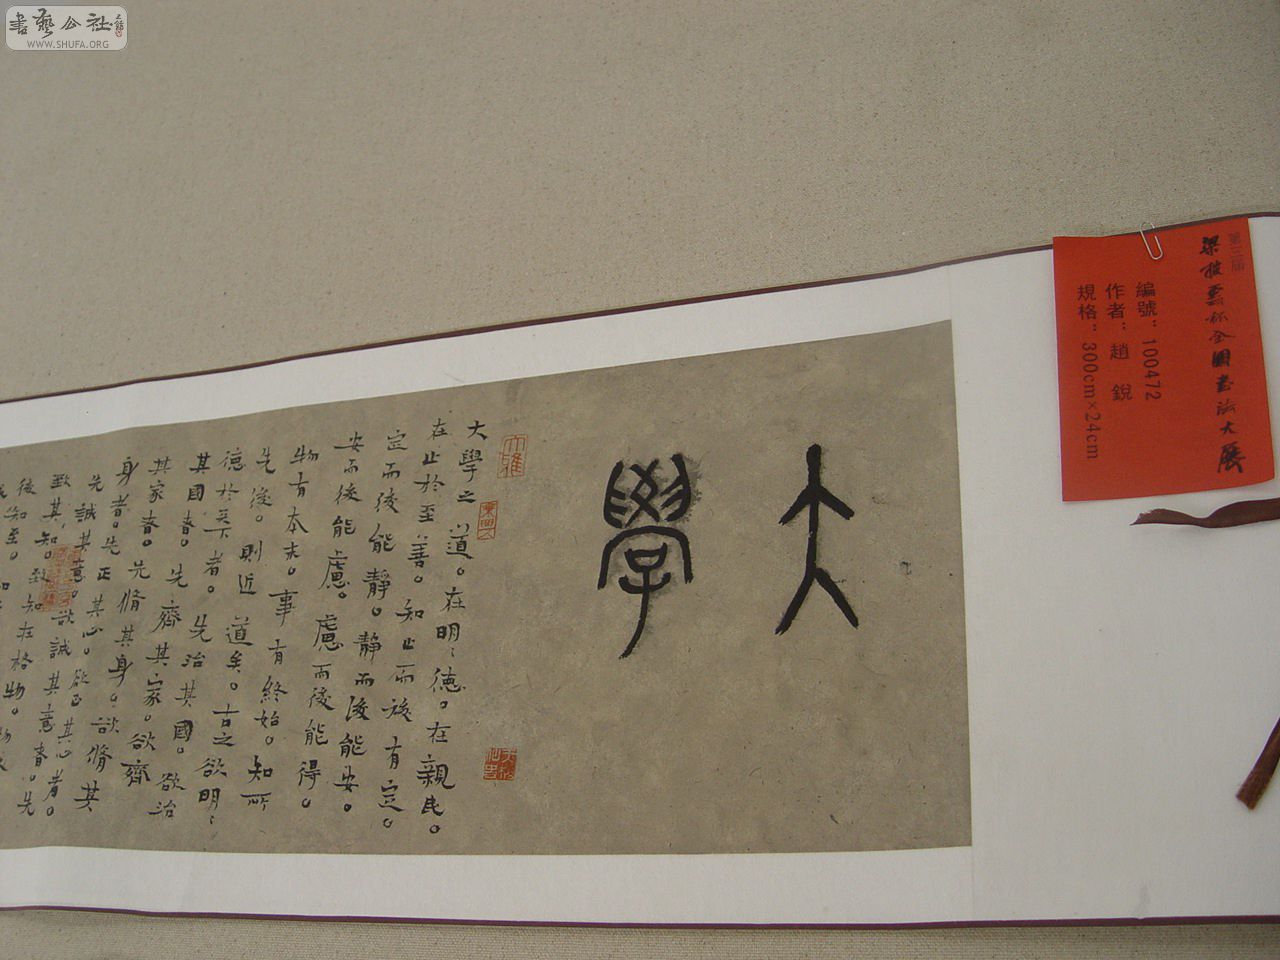 書藝公社
WWW.SHUFA.ORG
第三屆
梁披雲杯全國書法大展
編號：100472
作者：趙 銳
規格：300cm×24cm
大學
大學之道。在明〻德。在親民。
在止於至善。知止而後有定。
定而後能靜。靜而後能安。
安而後能慮。慮而後能得。
物有本末。事有終始。知所
先後。則近道矣。古之欲明〻
德於天下者。先治其國。欲治
其國者。先齊其家。欲齊
其家者。先脩其身。欲脩其
身者。先正其心。欲正其心者。
先誠其意。欲誠其意者。先
致其知。致知在格物。物
後知至。知